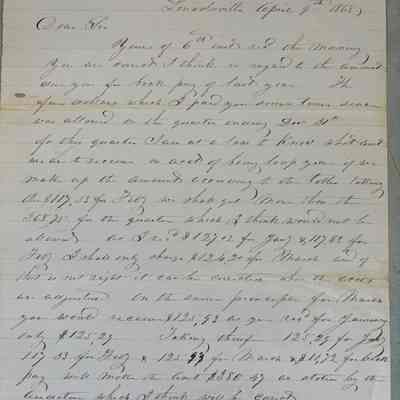 April 9th 1863
Dear Sir
Yours of 6th inst recd this morning
You are correct I think in regard to the amount
due you for back pay of last year. The
four dollars which I paid you some time since
was allowed in the quarter ending Dec 31st
for this quarter I am at a loss to know what
we are to receive on acct of being leap year if we
make up the amounts according to the table taking
the $117,53 for Feby we shall get more than the
for the quarter which I think would not be
allowed as I recd $127,12 for Jany & 117,82 for
Feby I shall only charge $124,20 for March and if
this is not right it can be corrected when the accts
are adjusted. On the same principle for March
you would receive $125,93 as you recd for January
only $125,29 Taking 125,29 for Jany
117 53 for Feby & 125 93 for March & $11,72 for back
pay will make the total $380 47 as stated by the
which I think will be correct